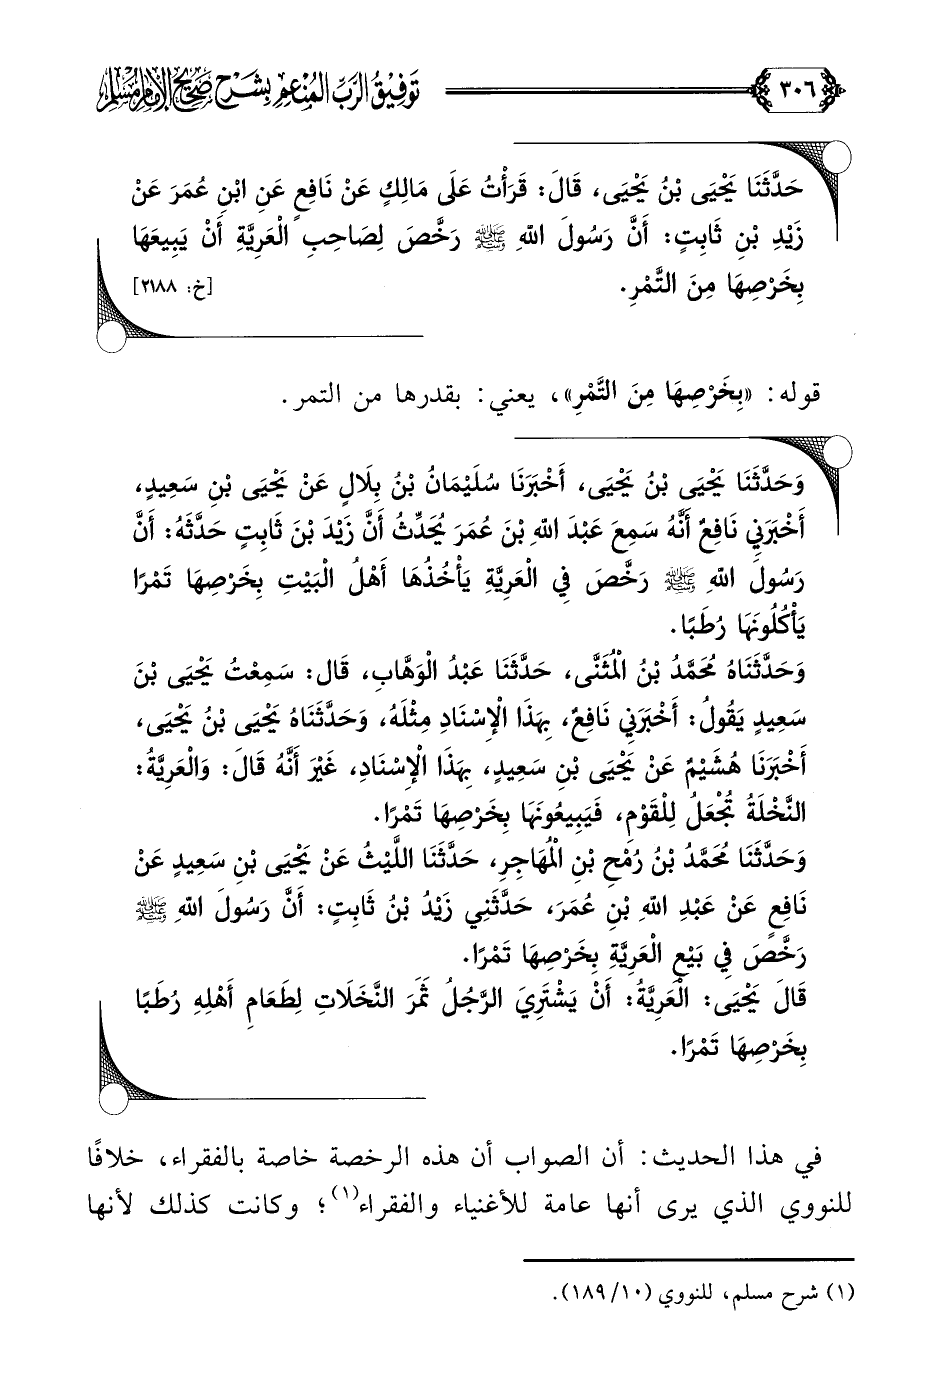 ٣٠٦
توفيق الرب المنعم بشرح صحيح الإمام مسلم
حَدَّثَنَا يَحْيَى بْنُ يَحْيَى، قَالَ: قَرَأْتُ عَلَى مَالِكٍ عَنْ نَافِعٍ عَنِ ابْنِ عُمَرَ عَنْ
زَيْدِ بْنِ ثَابِتٍ: أَنَّ رَسُولَ اللهِ ﷺ رَخَّصَ لِصَاحِبِ الْعَرِيَّةِ أَنْ يَبِيعَهَا
بِخَرْصِهَا مِنَ التَّمْرِ. [خ: ٢١٨٨]
قوله: «بِخَرْصِهَا مِنَ التَّمْرِ»، يعني: بقدرها من التمر.
وَحَدَّثَنَا يَحْيَى بْنُ يَحْيَى، أَخْبَرَنَا سُلَيْمَانُ بْنُ بِلَالٍ عَنْ يَحْيَى بْنِ سَعِيدٍ،
أَخْبَرَنِي نَافِعٌ أَنَّهُ سَمِعَ عَبْدَ اللهِ بْنَ عُمَرَ يُحَدِّثُ أَنَّ زَيْدَ بْنَ ثَابِتٍ حَدَّثَهُ: أَنَّ
رَسُولَ اللهِ ﷺ رَخَّصَ فِي الْعَرِيَّةِ يَأْخُذُهَا أَهْلُ الْبَيْتِ بِخَرْصِهَا تَمْرًا
يَأْكُلُونَهَا رُطَبًا.
وَحَدَّثَنَاهُ مُحَمَّدُ بْنُ الْمُثَنَّى، حَدَّثَنَا عَبْدُ الْوَهَّابِ، قَال: سَمِعْتُ يَحْيَى بْنَ
سَعِيدٍ يَقُولُ: أَخْبَرَنِي نَافِعٌ، بِهَذَا الْإِسْنَادِ مِثْلَهُ، وَحَدَّثَنَاهُ يَحْيَى بْنُ يَحْيَى،
أَخْبَرَنَا هُشَيْمٌ عَنْ يَحْيَى بْنِ سَعِيدٍ، بِهَذَا الْإِسْنَادِ، غَيْرَ أَنَّهُ قَالَ: وَالْعَرِيَّةُ:
النَّخْلَةُ تُجْعَلُ لِلْقَوْمِ، فَيَبِيعُونَهَا بِخَرْصِهَا تَمْرًا.
وَحَدَّثَنَا مُحَمَّدُ بْنُ رُمْحِ بْنِ الْمُهَاجِرِ، حَدَّثَنَا اللَّيْثُ عَنْ يَحْيَى بْنِ سَعِيدٍ عَنْ
نَافِعٍ عَنْ عَبْدِ اللهِ بْنِ عُمَرَ، حَدَّثَنِي زَيْدُ بْنُ ثَابِتٍ: أَنَّ رَسُولَ اللهِ ﷺ
رَخَّصَ فِي بَيْعِ الْعَرِيَّةِ بِخَرْصِهَا تَمْرًا.
قَالَ يَحْيَى: الْعَرِيَّةُ: أَنْ يَشْتَرِيَ الرَّجُلُ ثَمَرَ النَّخَلَاتِ لِطَعَامِ أَهْلِهِ رُطَبًا
بِخَرْصِهَا تَمْرًا.
في هذا الحديث: أن الصواب أن هذه الرخصة خاصة بالفقراء، خلافًا
للنووي الذي يرى أنها عامة للأغنياء والفقراء(١)؛ وكانت كذلك لأنها
(١) شرح مسلم، للنووي (١٠/ ١٨٩).